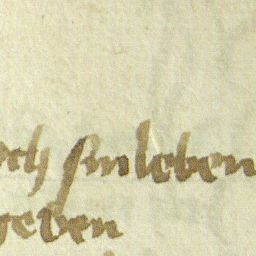 och sinleben
geven